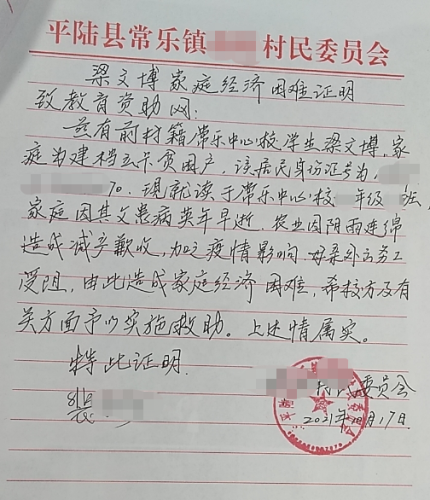 平陆县常乐镇 村民委员会
梁文博家庭经济困难证明
致教育资助网:
兹有前村籍常乐中心校学生梁文博,家
庭为建档立卡贫困户,该居民身份证号为,
70.现就读于常乐中心校 年级 班,
家庭因其父患病英年早逝.农业因阴雨连绵
造成减产歉收,加之疫情影响.母亲外出务工
受阻,由此造成家庭经济困难,希校方及有
关方面予以实施救助。上述情属实。
特此证明.
村民委员会
2021年 月17日.